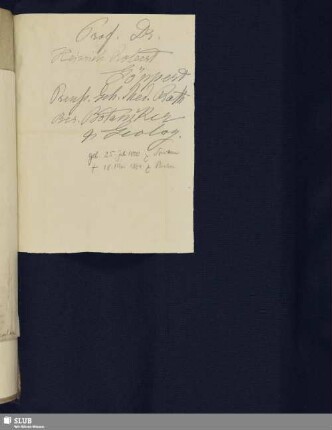 Prof. Dr.
Heinrich Robert
Göppert
Preuß. Geh. Med. Rath
Botaniker
u. Geolog.
geb. 25. Juli 1800 z. Sprottau
† 18. Mai 1884 z. Breslau
SLUB
Wir führen Wissen.